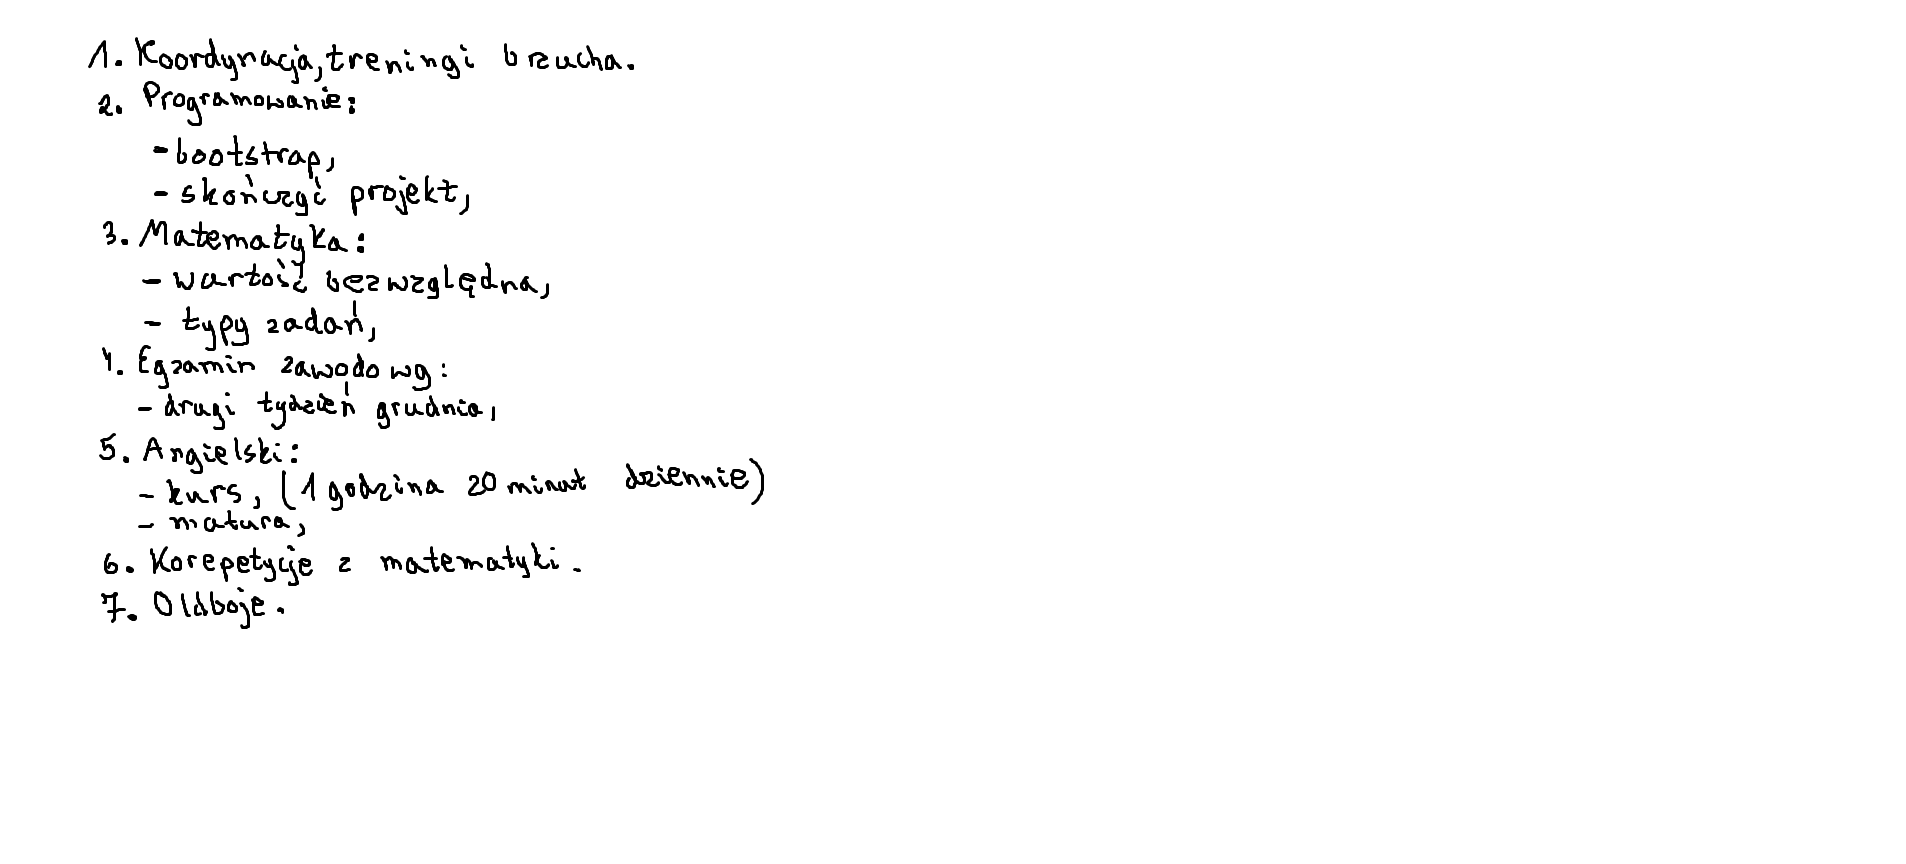 1. Koordynacja, treningi brzucha.
2. Programowanie:
- bootstrap,
- skończyć projekt,
3. Matematyka:
- wartość bezwzględna,
- typy zadań,
4. Egzamin zawodowy:
- drugi tydzień grudnia,
5. Angielski:
- kurs, (1 godzina 20 minut dziennie)
- matura,
6. Korepetycje z matematyki.
7. Oldboje.